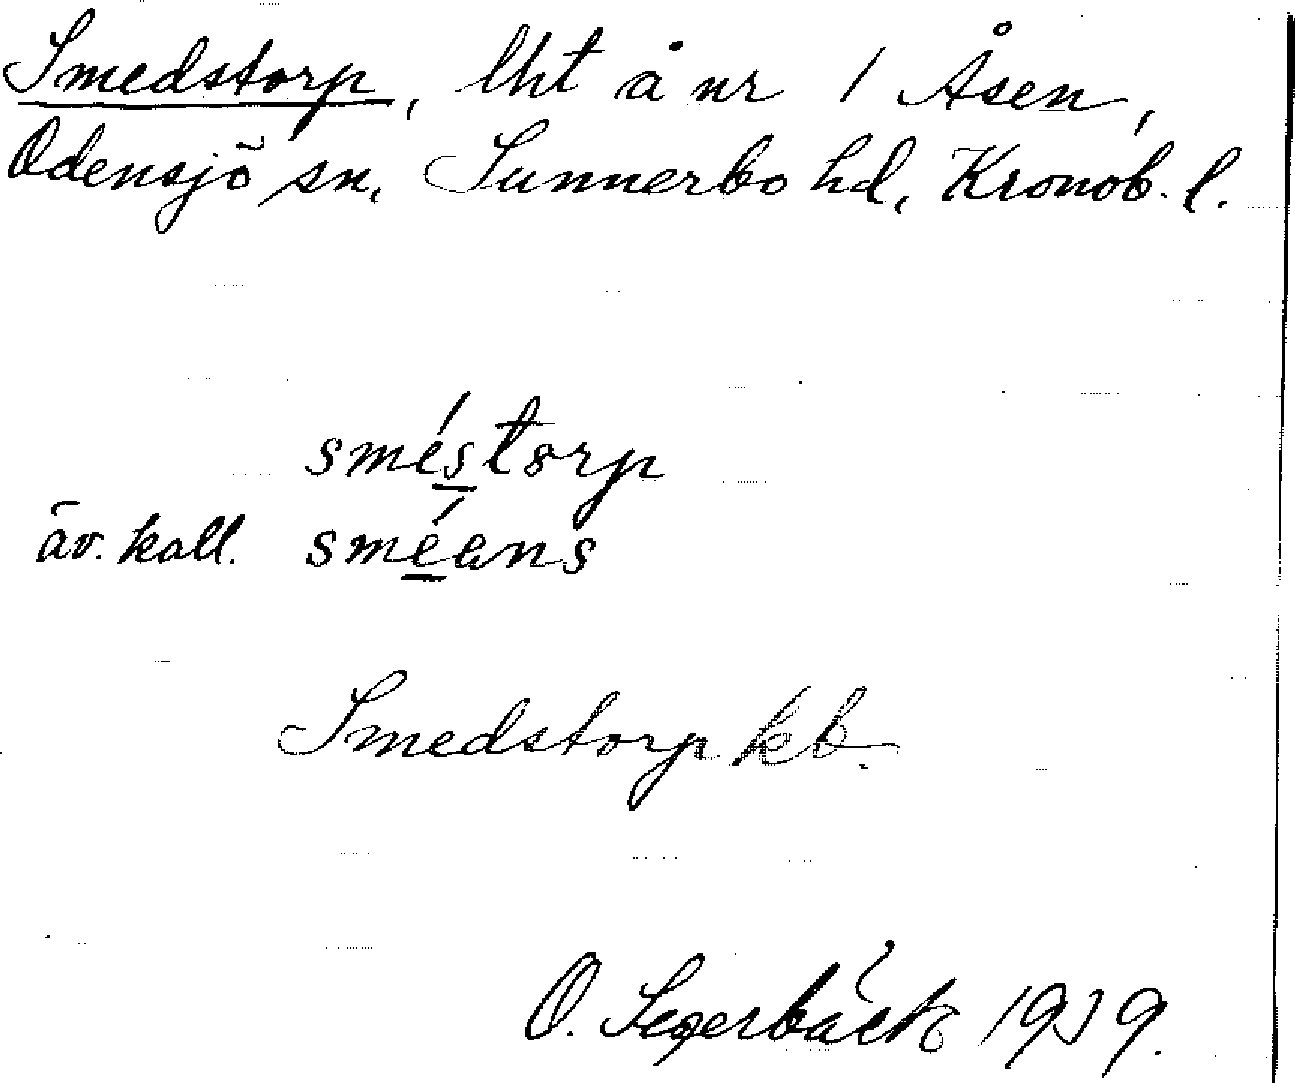 Smedstorp, lht å nr 1 Åsen,
Odensjö sn, Sunnerbo hd, Kronob. l.
sméstorp
äv. kall. sméans
Smedstorp kb.
O. Segerbäck 1939.